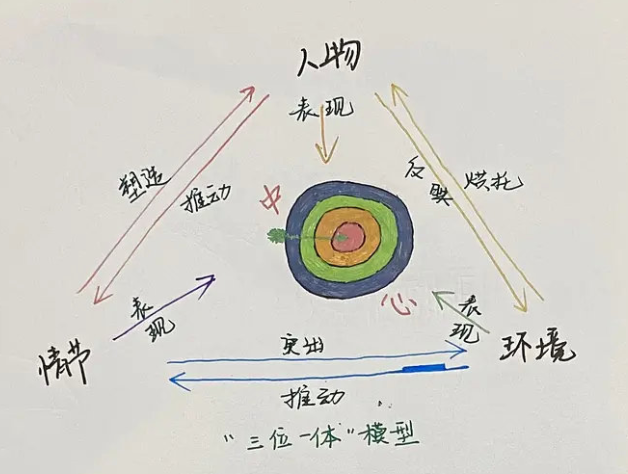 人物
表现
塑造
推动
反映
烘托
中
心
表现
表现
情节
突出
环境
推动
"三位一体"模型